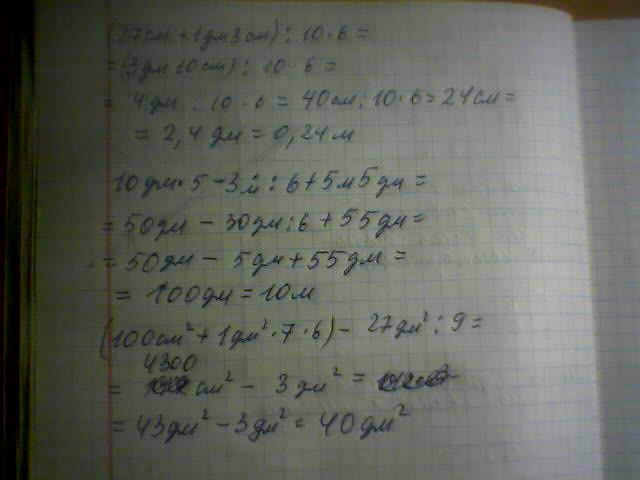 (27см + 1дм3см) : 10 · 6 =
= (3дм 10см) : 10 · 6 =
= 4дм : 10 · 6 = 40см : 10 · 6 = 24см =
= 2,4 дм = 0,24 м
10дм · 5 - 3м : 6 + 5м5дм =
= 50дм - 30дм : 6 + 55дм =
= 50дм - 5дм + 55дм =
= 100дм = 10м
(100см² + 1дм² · 7 · 6) - 27дм² : 9 =
4300
= см² - 3дм² =
= 43дм² - 3дм² = 40дм²